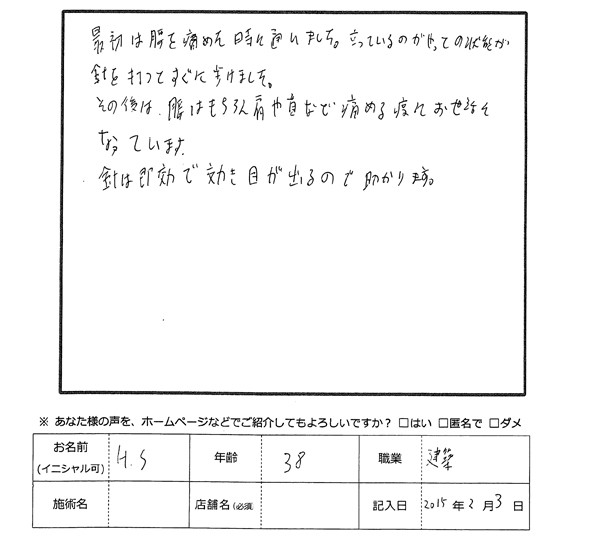 最初は腰を痛めた時に通いました。立っているのがやっての状態が
針を打つてすぐに歩けました。
その後は、腰はもちろん肩や首など痛める度にお世話に
なっています。
針は即効で効き目が出るので助かります。
※ あなた様の声を、ホームページなどでご紹介してもよろしいですか? □はい □匿名で □ダメ
お名前 (イニシャル可) H.S 年齢 38 職業 建築
施術名 店舗名 (必須) 記入日 2015 年 2 月 3 日